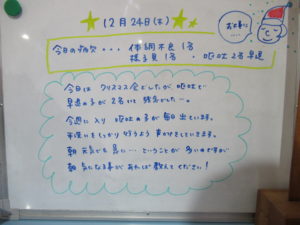 12月24日(木)
お大事に…
今日の病欠... 体調不良 1名
様子見 1名 ・ 嘔吐 2名 早退
今日は クリスマス会でしたが 嘔吐で
早退の子が 2名いて 残念でした…。
今週に入り 嘔吐の子が 毎日 出ています。
手洗いをしっかり 行うよう 声かけをしていきます。
朝 元気でも 急に… ということが 多いのですが
朝 気になる事が あれば 教えて ください!